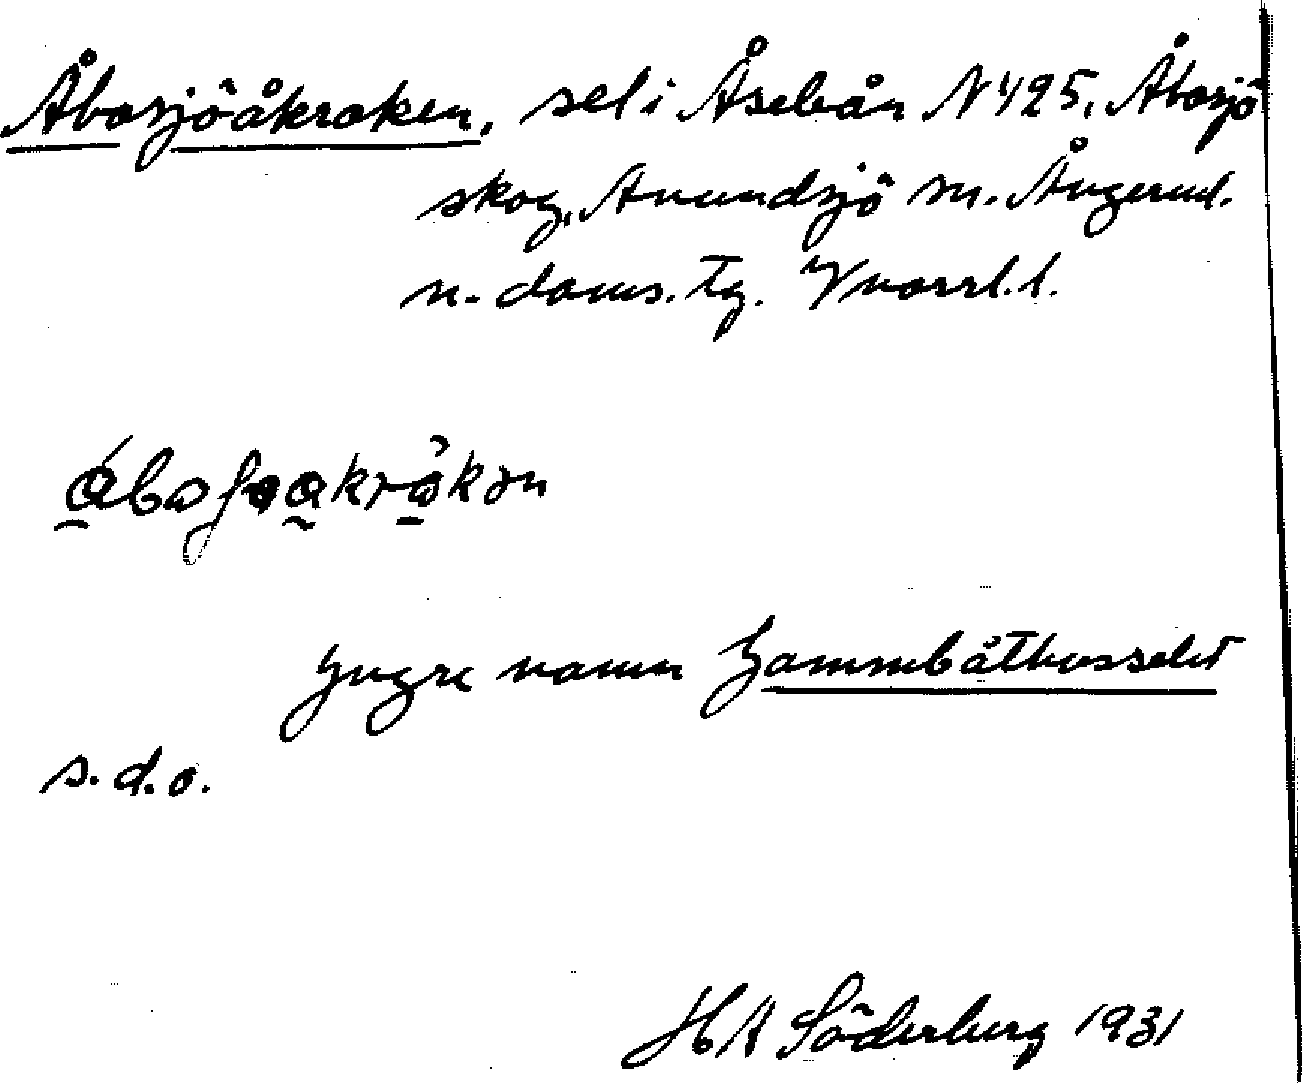 Åbosjöåkroken, sel i Åseleån N 425, Åbosjö
skog, Anundsjö sn. Ångerml.
n. doms. tg. Vnorrl. l.
yngre namn Gammbåthusselet
s. d. o.
H A Söderberg 1931